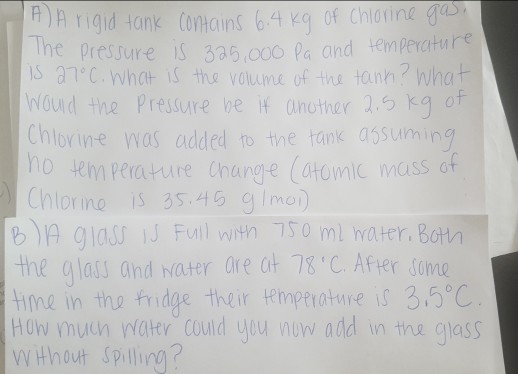 A) A rigid tank contains 6.4 kg of Chlorine gas.
The pressure is 325,000 Pa and temperature
is 27°C. What is the volume of the tank? What
would the Pressure be if another 2.5 kg of
Chlorine was added to the tank assuming
no temperature change (atomic mass of
Chlorine is 35.45 g/mol)
B) A glass is Full with 750 ml water. Both
the glass and water are at 78°C. After some
time in the fridge their temperature is 3.5°C.
How much water could you now add in the glass
without spilling?